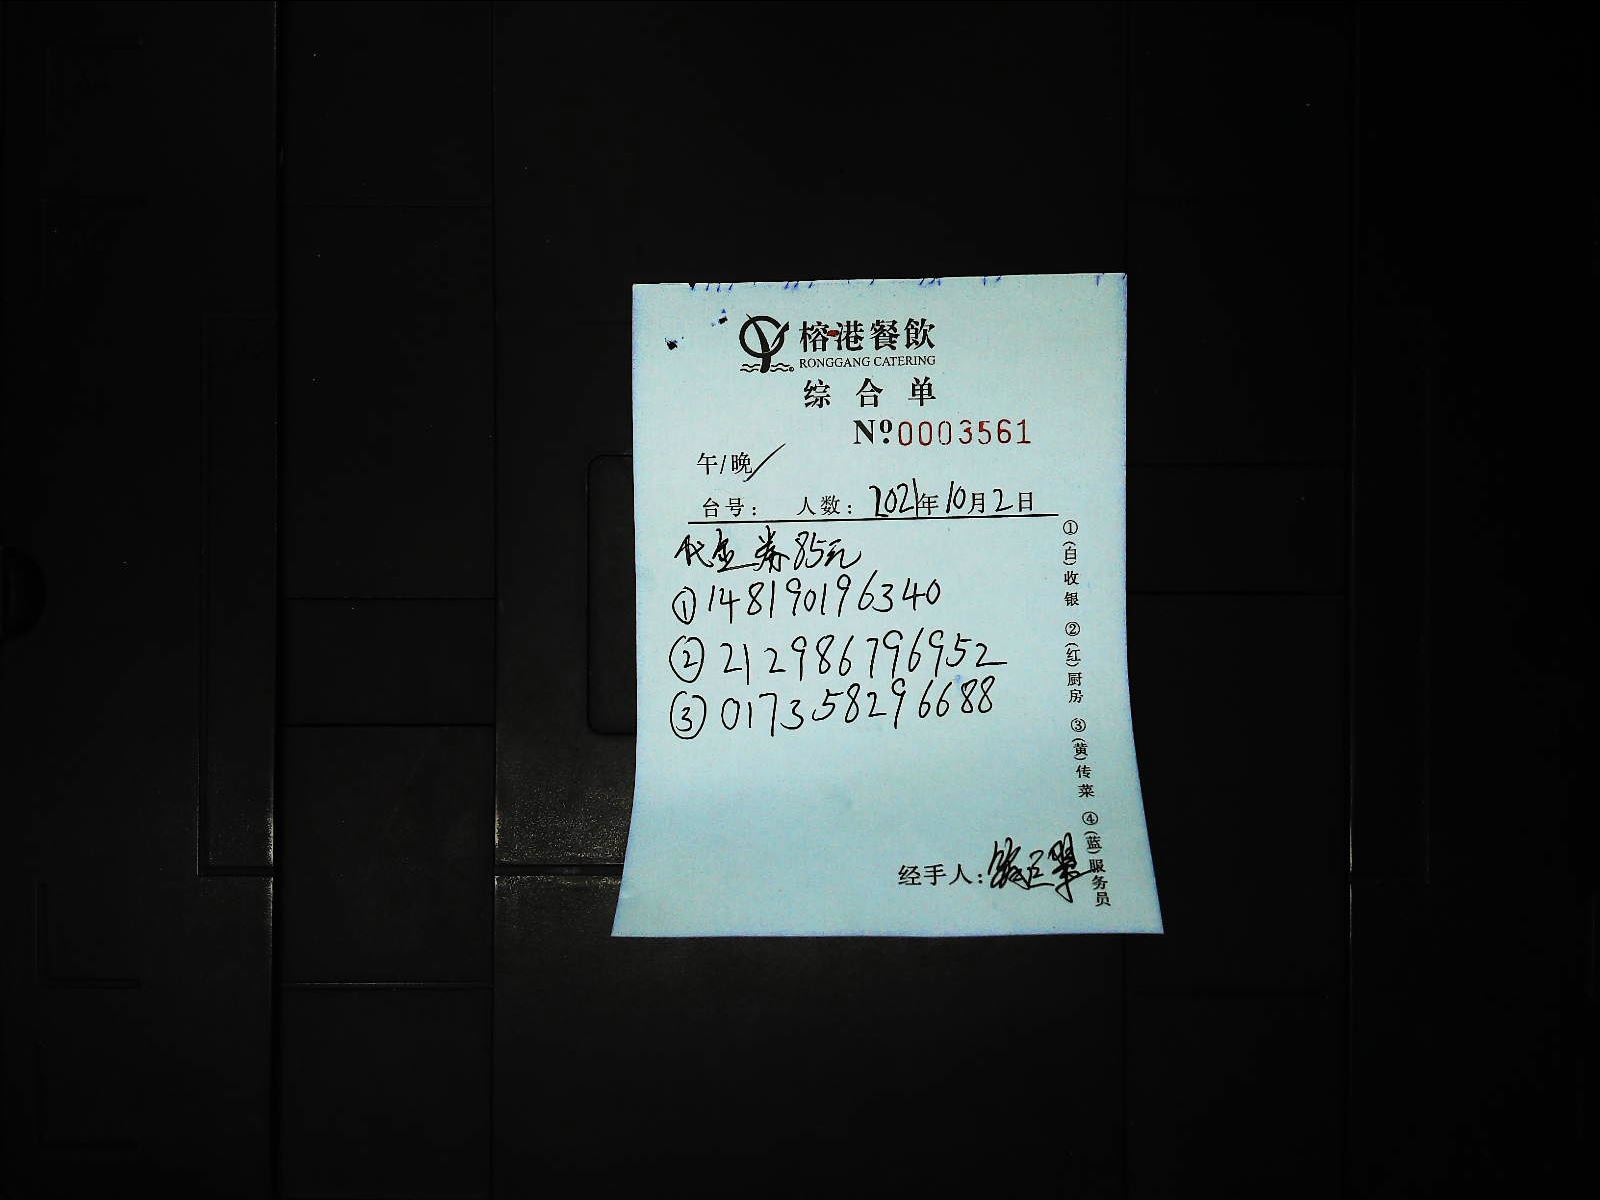 榕港餐飲
RONGGANG CATERING
综合单
Nº0003561
午/晚
台号: 人数: 2021年10月2日
代金券85元
①148190196340
②212986796952
③017358296688
经手人:
①(白)收银 ②(红)厨房 ③(黄)传菜 ④(蓝)服务员